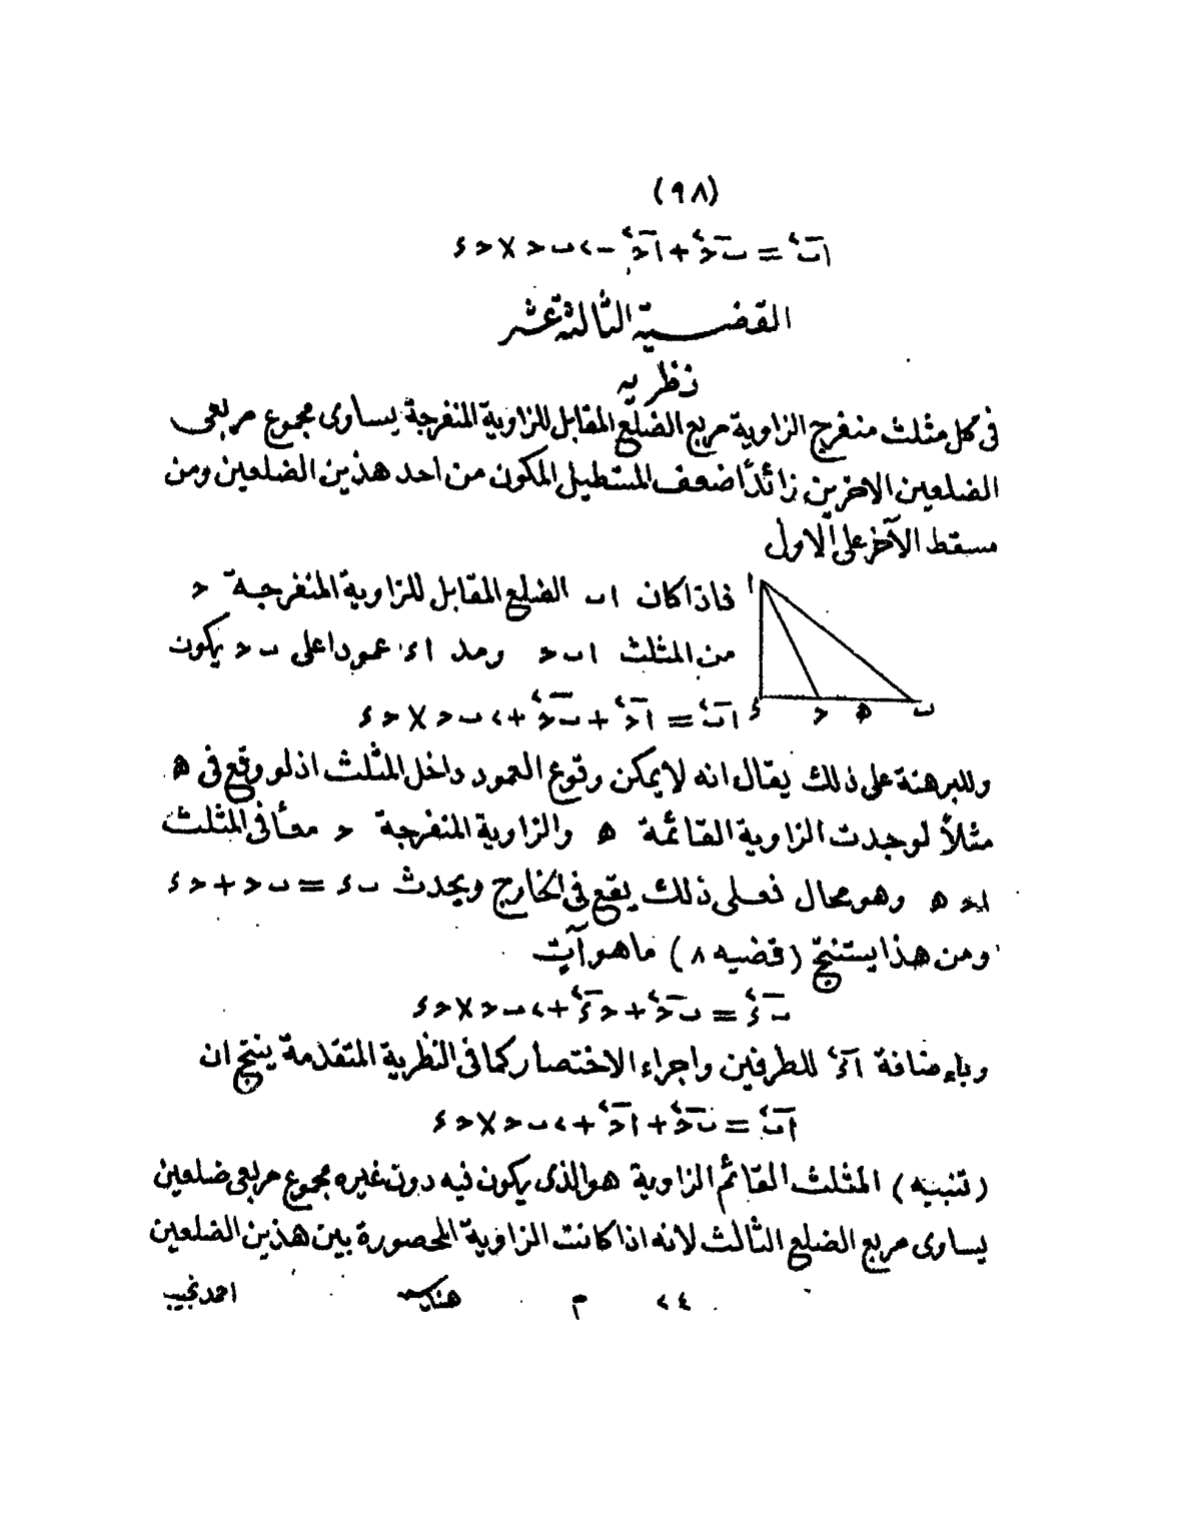 (٩٨)
اب٢ = بح٢ + اح٢ - ٢ ب ح × ح ء
القضية الثالثة عشر
نظريه
فى كل مثلث منفرج الزاوية مربع الضلع المقابل للزاوية المنفرجة يساوى مجموع مربعى
الضلعين الاخرين زائدًا ضعف المستطيل المكون من احد هذين الضلعين ومن
مسقط الآخر على الاول
فاذا كان اب الضلع المقابل للزاوية المنفرجة ح
من المثلث اب ح ومد اء عمودا على ب ح يكون
اب٢ = اح٢ + بح٢ + ٢ ب ح × ح ء
ا
ء ح ه ب
وللبرهنة على ذلك يقال انه لا يمكن وقوع العمود داخل المثلث اذ لو وقع فى ه
مثلاً لوجدت الزاوية القائمة ه والزاوية المنفرجة ح معاً فى المثلث
اح ه وهو محال فعلى ذلك يقع فى الخارج ويحدث ب ء = ب ح + ح ء
ومن هذا يستنتج (قضيه ٨) ما هو آت
بء٢ = بح٢ + حء٢ + ٢ ب ح × ح ء
وباضافة اء٢ للطرفين واجراء الاختصار كما فى النظرية المتقدمة ينتج ان
اب٢ = بح٢ + اح٢ + ٢ ب ح × ح ء
(تنبيه) المثلث القائم الزاوية هو الذى يكون فيه دون غيره مجموع مربعى ضلعين
يساوى مربع الضلع الثالث لانه اذا كانت الزاوية المحصورة بين هذين الضلعين
٢٤ م هندسه احمد نجيب